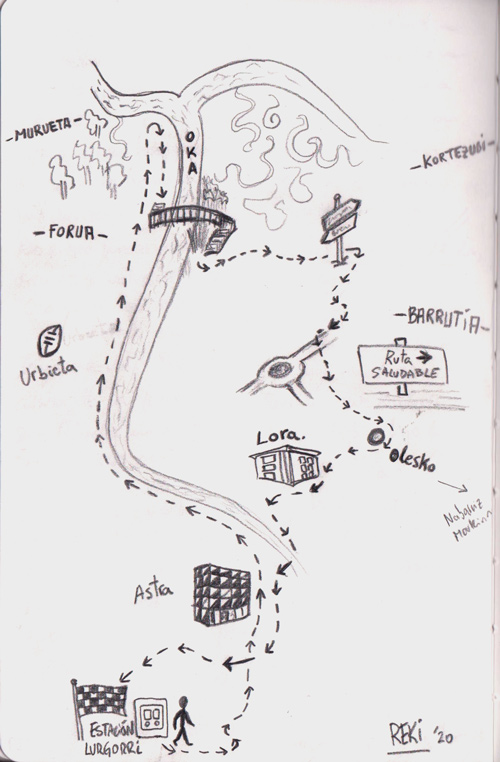 -MURUETA-
OKA
-KORTEZUBI-
-FORUA-
-BARRUTIA-
Urbieta
Ruta →
SALUDABLE
Lora.
Olesko
Astra
ESTACIÓN
LURGORRI
REKI '20